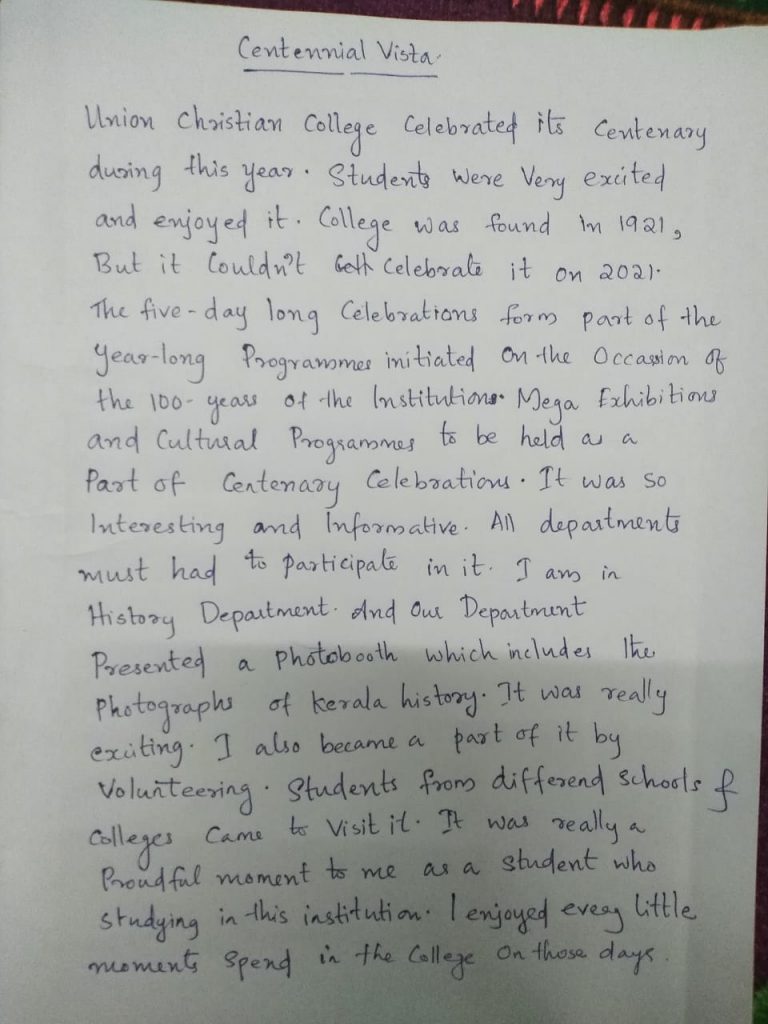 Centennial Vista.
Union Christian College Celebrated its Centenary
during this year. Students were Very excited
and enjoyed it. College was found in 1921,
But it Couldn't Celebrate it on 2021.
The five-day long Celebrations form part of the
Year-long Programmes initiated On the Occassion of
the 100-years of the Institutions. Mega Exhibitions
and Cultural Programmes to be held as a
Part of Centenary Celebrations. It was so
Interesting and Informative. All departments
must had to participate in it. I am in
History Department. And Our Department
Presented a Photobooth which includes the
Photographs of Kerala history. It was really
exciting. I also became a part of it by
Volunteering. Students from differend Schools &
Colleges Came to Visit it. It was really a
Proudful moment to me as a student who
studying in this institution. I enjoyed every little
moments Spend in the College On those days.